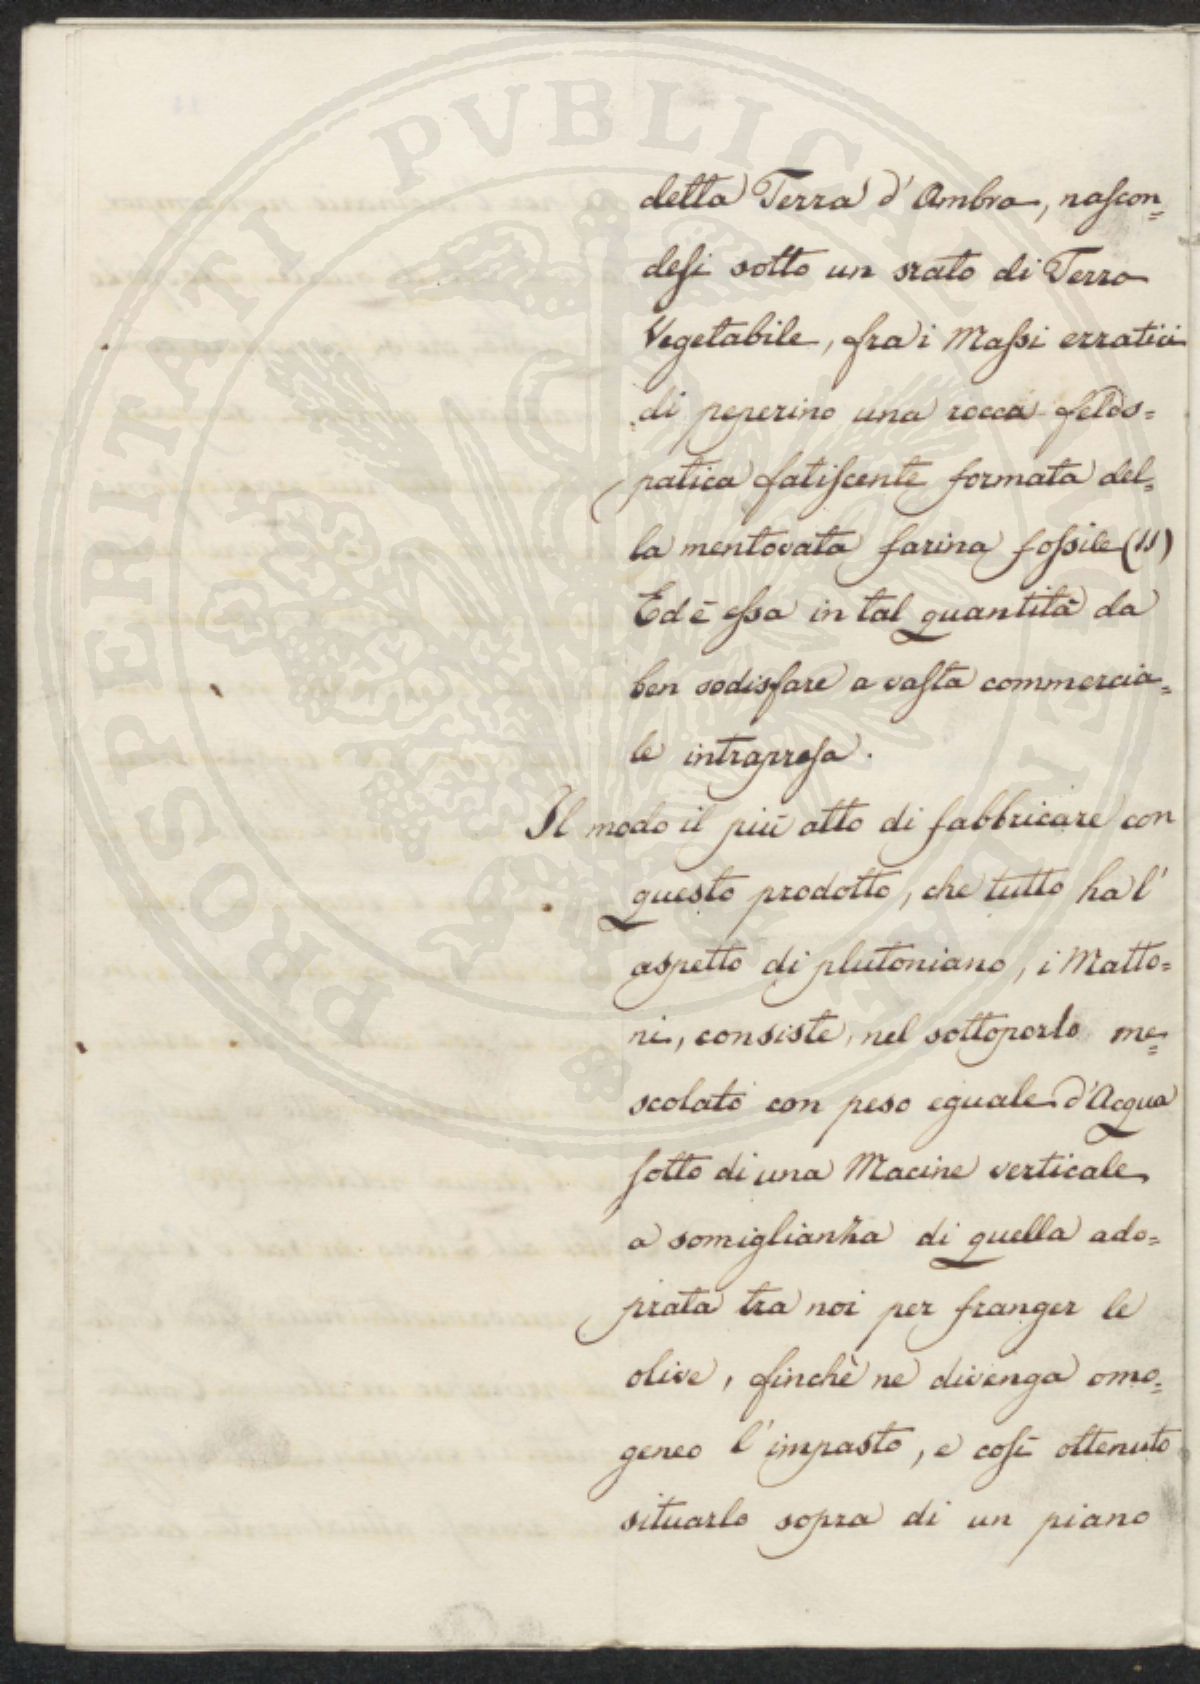 PROSPERITATI PVBLICAE AVGENDAE
detta Terra d'Ambra, nascon=
desi sotto un srato di Terra
Vegetabile, fra i Massi erratici
di peperino una rocca felds=
patica fatiscente formata del=
la mentovata farina fossile (11)
Ed è essa in tal quantità da
ben sodisfare a vasta commercia=
le intrapresa.
Il modo il più atto di fabbricare con
questo prodotto, che tutto ha l'
aspetto di plutoniano, i Matto=
ni, consiste, nel sottoporlo me=
scolato con peso eguale d'Acqua
sotto di una Macine verticale
a somiglianza di quella ado=
prata tra noi per franger le
olive, finchè ne divenga omo=
geneo l'impasto, e così ottenuto
situarlo sopra di un piano